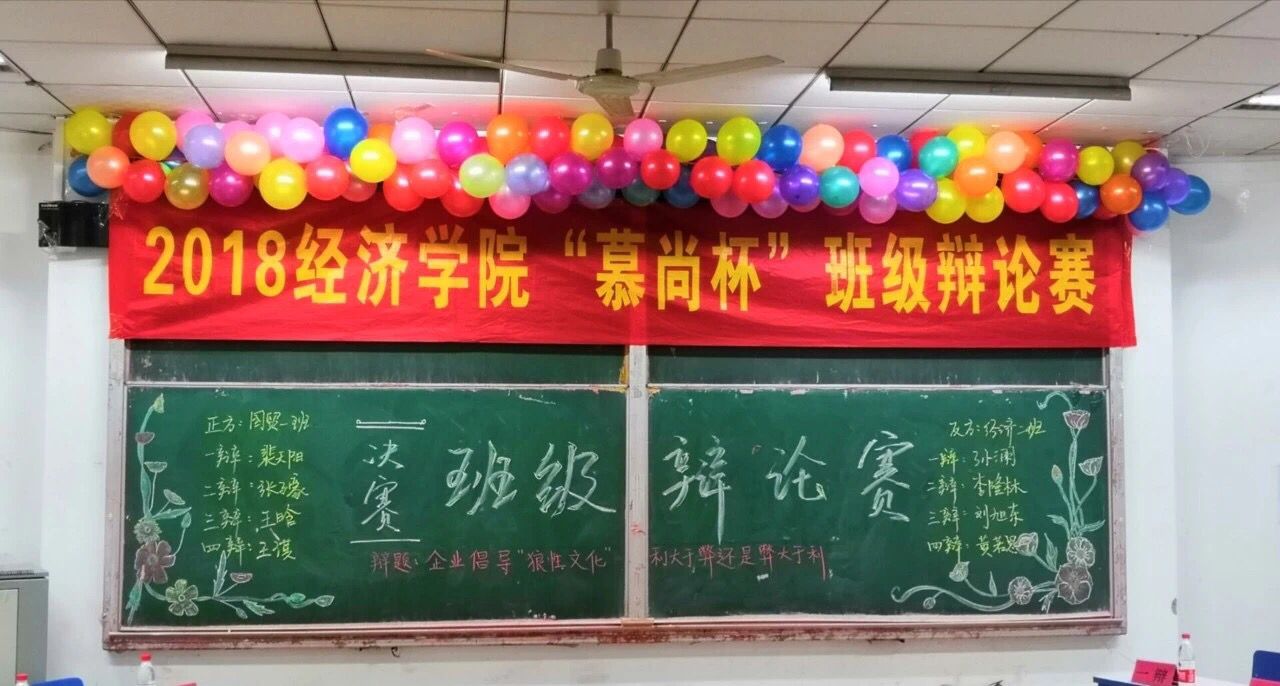 2018经济学院“慕尚杯”班级辩论赛
正方：国贸一班
一辩：裴天阳
二辩：张子豪
三辩：王晗
四辩：王淇
决赛
班级辩论赛
辩题：企业倡导"狼性文化"利大于弊还是弊大于利
反方：经济二班
一辩：孙澜
二辩：李隆林
三辩：刘旭东
四辩：黄若恩
一辩